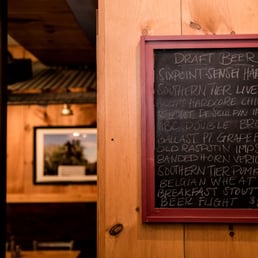 DRAFT BEER
SIXPOINT SENSEI HA
SOUTHERN TIER LIVE
HARDCORE CHE
DOUBLE BR
BALLAST PT GRAPEF
OLD RASPUTIN IMPS
BANDED HORN VERIC
SOUTHERN TIER PUMK
BELGIAN WHEAT
BREAKFAST STOUT
BEER FLIGHT $